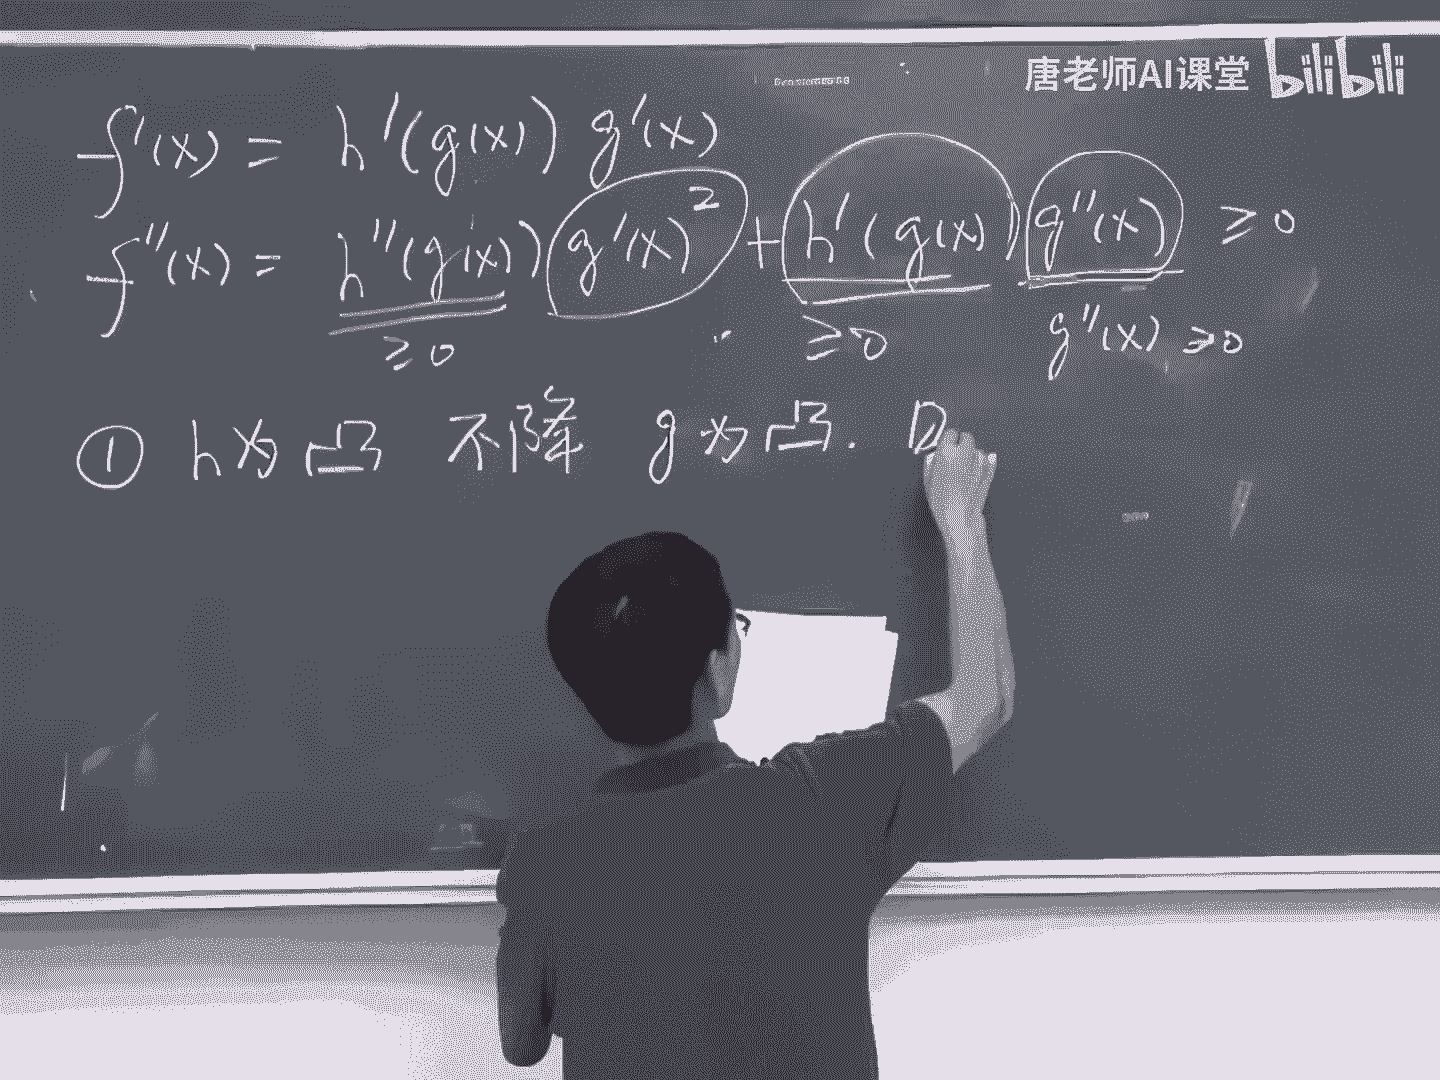 唐老师AI课堂 bilibili
f'(x) = h'(g(x)) g'(x)
f''(x) = h''(g(x)) g'(x)² + h'(g(x)) g''(x) ≥ 0
≥ 0 ≥ 0 g''(x) ≥ 0
① h为凸 不降 g为凸. D